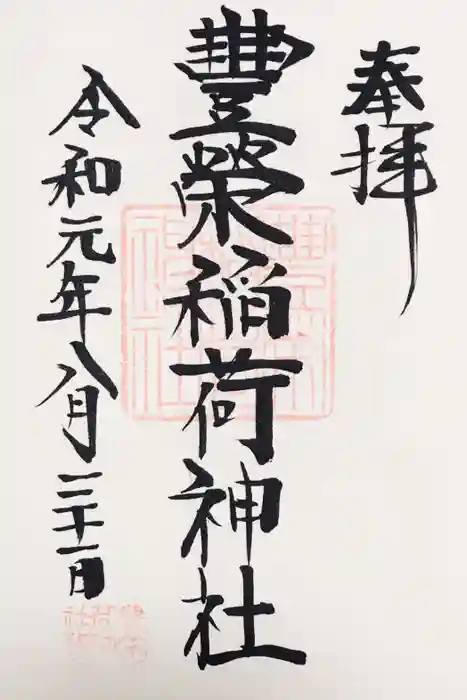 奉拝
豐榮稲荷神社
令和元年八月三十一日